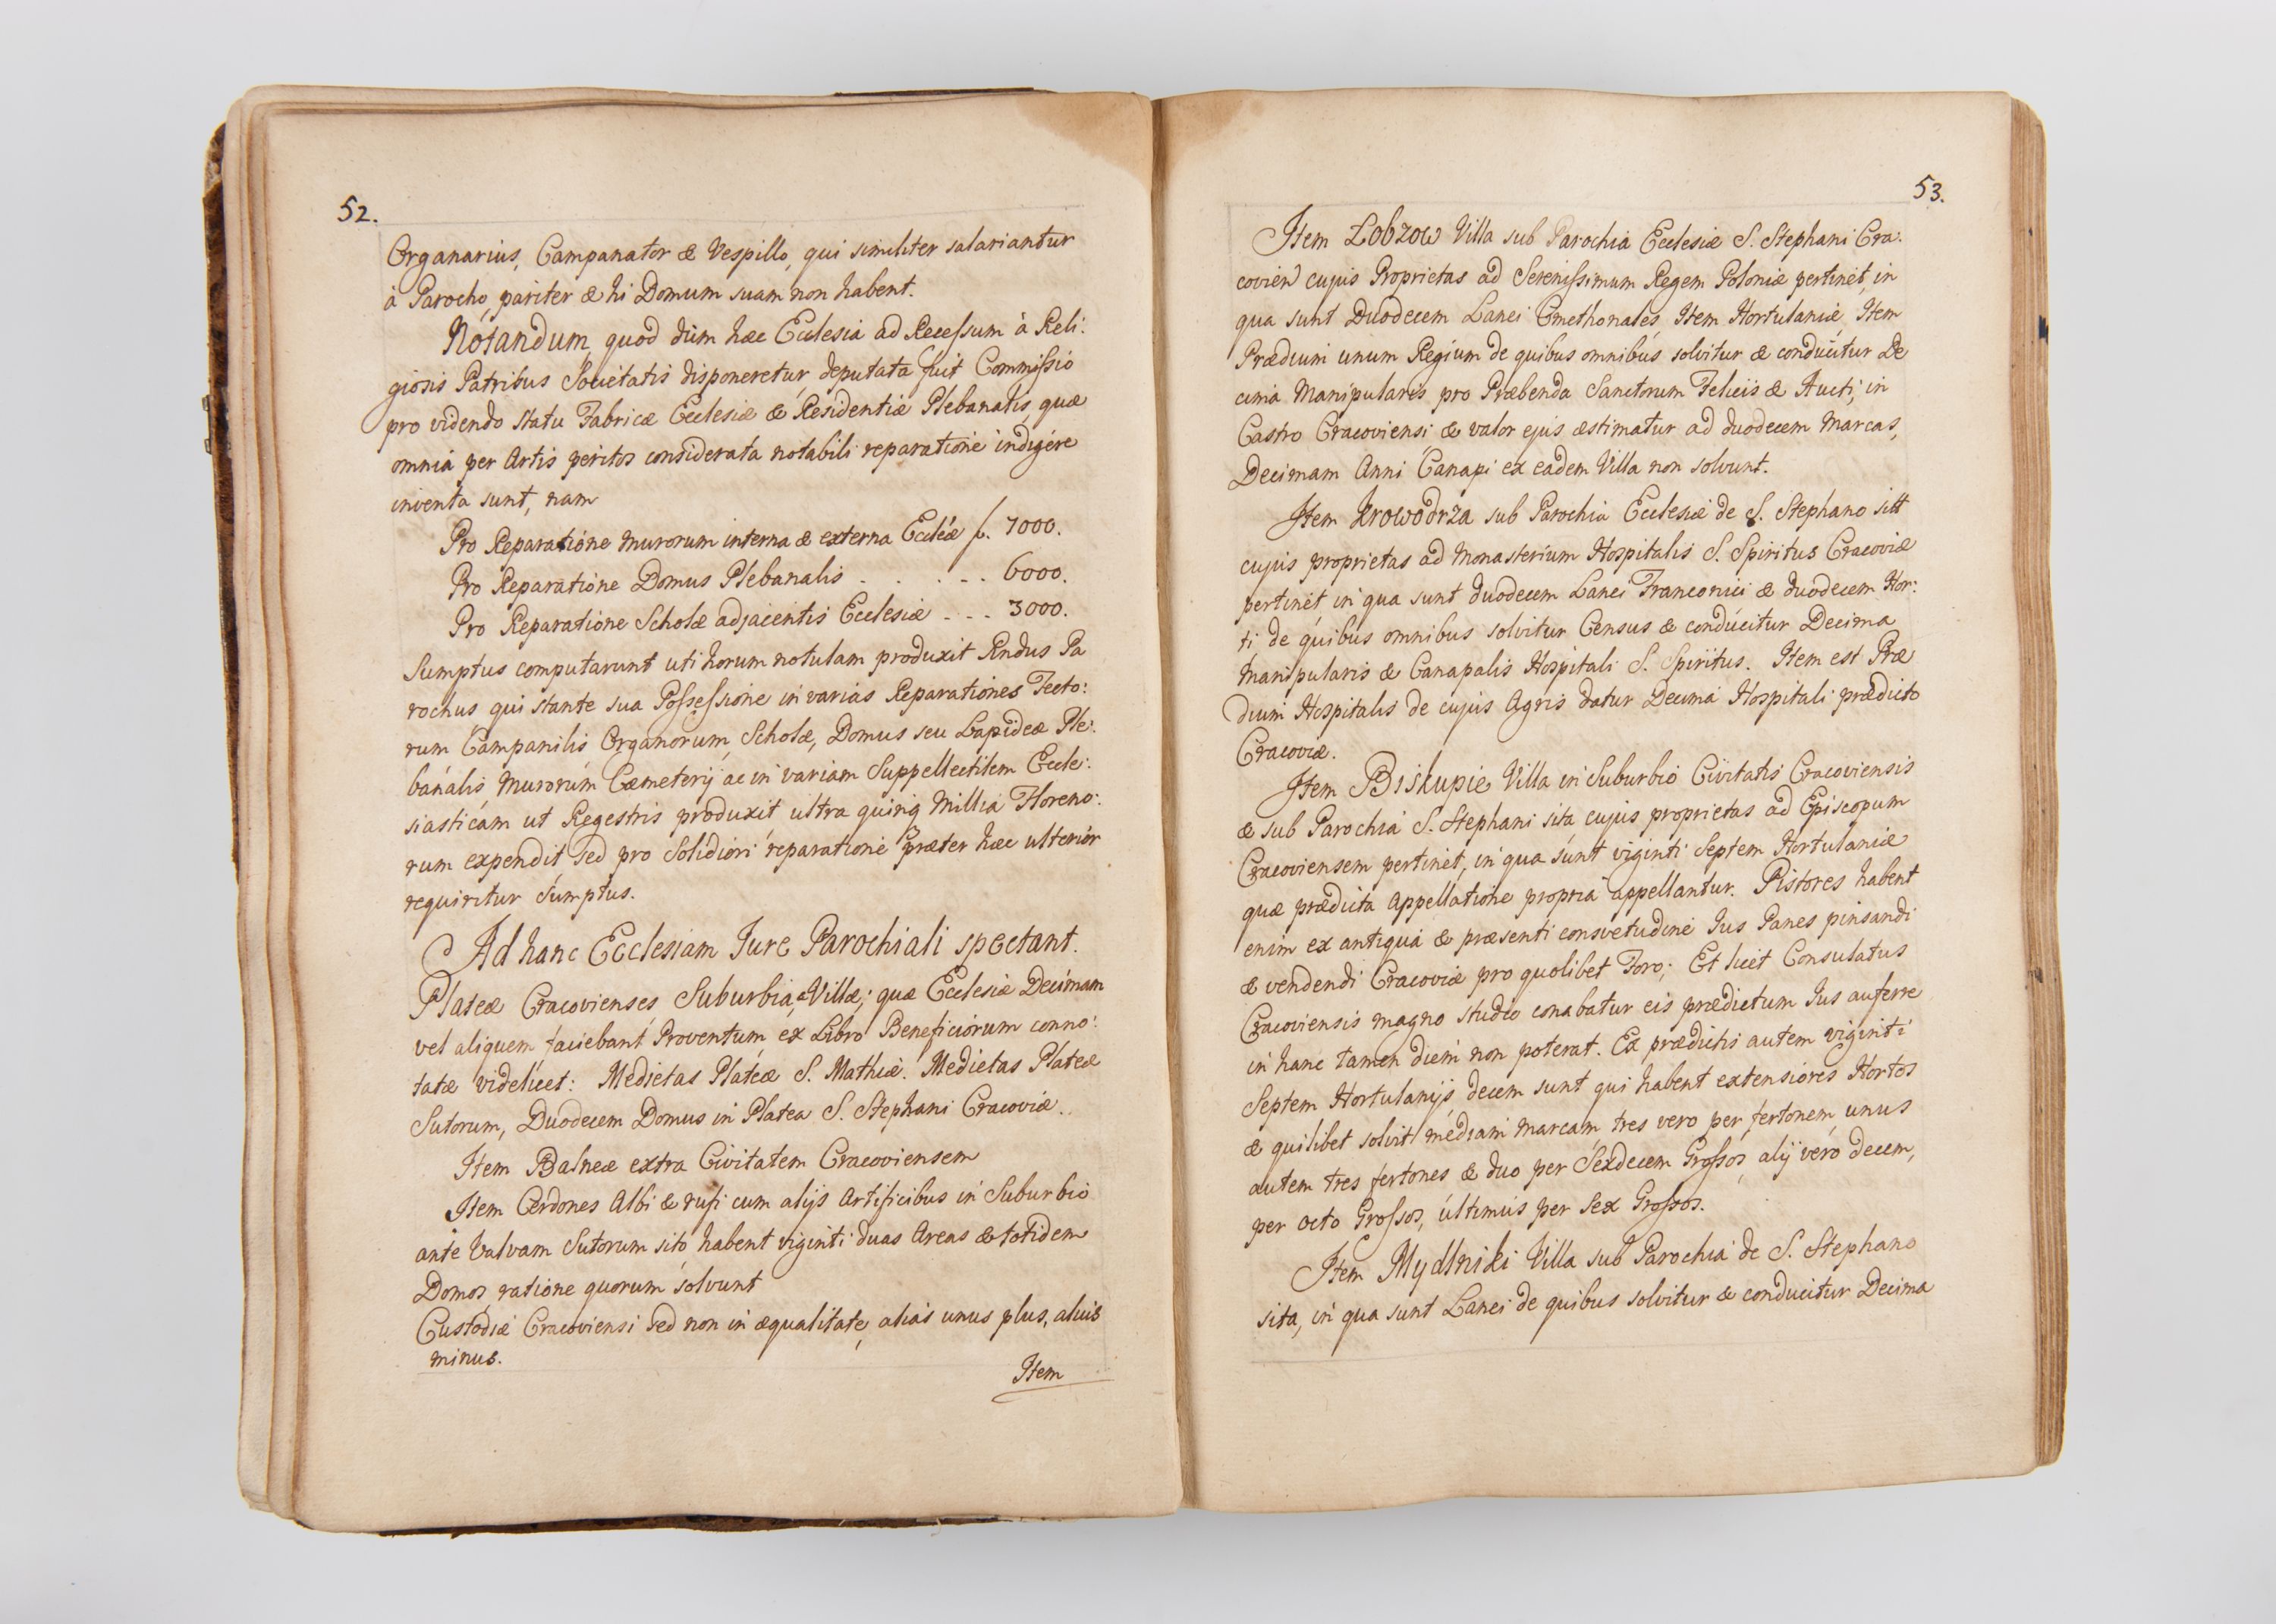 52.
Organarius, Campanator & Vespillo, qui similiter salariantur
à Parocho, pariter & hi Domum suam non habent.
Notandum quod dùm hæc Ecclesia ad Recessum à Reli:
giosis Patribus Societatis disponeretur, deputata fuit Commissio
pro videndo statu Fabricæ Ecclesiæ & Residentiæ Plebanalis, quæ
omnia per Artis peritos considerata notabili reparatione indigere
inventa sunt, nam
Pro Reparatione murorum interna & externa Eccleæ f. 7000.
Pro Reparatione Domus Plebanalis . . . - - . 6000.
Pro Reparatione Scholæ adjacentis Ecclesiæ - - . 3000.
Sumptus computarunt uti horum notulam produxit Rndus Pa
rochus qui stante sua Possessione in varias Reparationes Tecto:
rum Campanilis Organorum, Scholæ, Domus seu Lapideæ Ple:
banalis, Murorum Cæmeterij ac in variam Suppellectilem Eccle:
siasticam ut Regestris produxit ultra quinq Millia Floreno:
rum expendit, sed pro solidiori reparatione præter hæc ulterior
requiritur sumptus.
Ad hanc Ecclesiam Jure Parochiali spectant.
Plateæ Cracovienses Suburbia & Villæ; quæ Ecclesiæ Decimam
vel aliquem faciebant Proventum, ex Libro Beneficiorum conno:
tatæ videlicet: Medietas Plateæ S. Mathiæ. Medietas Plateæ
Sutorum, Duodecem Domus in Platea S. Stephani Cracoviæ.
Item Balneæ extra Civitatem Cracoviensem
Item Cerdones Albi & rufi cum alijs Artificibus in Suburbio
ante Valvam Sutorum sito, habent viginti duas Areas & totidem
Domos, ratione quorum solvunt
Custodiæ Cracoviensi sed non in æqualitate, aliàs unus plus, alius
minus.
Item
53.
Item Łobzow Villa sub Parochia Ecclesiæ S. Stephani Cra:
covien cujus Proprietas ad Serenissimum Regem Poloniæ pertinet, in
qua sunt Duodecem Lanei Cmethonales, Item Hortulaniæ, Item
Prædium unum Regium de quibus omnibus solvitur & conducitur De
cima Manipularis pro Præbenda Sanctorum Felicis & Aucti, in
Castro Cracoviensi & valor ejus æstimatur ad duodecem Marcas,
Decimam Anni Canapi ex eadem Villa non solvunt.
Item Krowodrza sub Parochia Ecclesiæ de S. Stephano sitt
cujus proprietas ad Monasterium Hospitalis S. Spiritus Cracoviæ
pertinet in qua sunt duodecem Lanei Franconici & duodecem Hor:
ti de quibus omnibus solvitur Census & conducitur Decima
Manipularis & Canapalis Hospitali S. Spiritus. Item est Præ
dium Hospitalis de cujus Agris datur Decima Hospitali prædicto
Cracoviæ.
Item Biskupie Villa in Suburbio Civitatis Cracoviensis
& sub Parochia S. Stephani sita cujus proprietas ad Episcopum
Cracoviensem pertinet, in qua sunt viginti Septem Hortulaniæ
quæ prædicta Appellatione propria appellantur. Pistores habent
enim ex antiqua & præsenti consvetudine Jus Panes pinsandi
& vendendi Cracoviæ pro quolibet Foro; Et licet Consulatus
Cracoviensis magno studio conabatur eis prædictum Jus auferre
in hanc tamen diem non poterat. Ex prædictis autem viginti
Septem Hortulanijs decem sunt qui habent extensiores Hortos
& quilibet solvit mediam Marcam tres vero per fertonem, unus
autem tres fertones & duo per Sexdecem Grossos, alij vero decem,
per Octo Grossos, ultimus per Sex Grossos.
Item Mydlniki Villa sub Parochia de S. Stephano
sita, in qua sunt Lanei de quibus solvitur & conducitur Decima